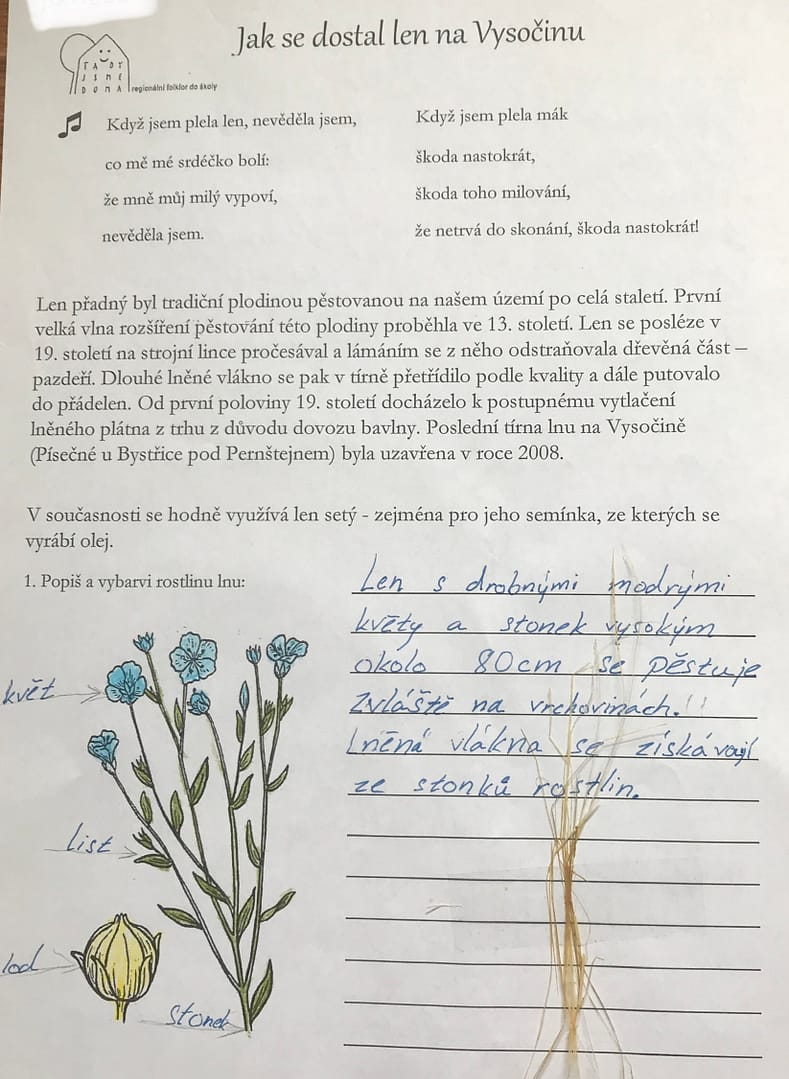 Jak se dostal len na Vysočinu
TADY
JSME
DOMA
regionální folklor do školy
Když jsem plela len, nevěděla jsem,
co mě mé srdéčko bolí:
že mně můj milý vypoví,
nevěděla jsem.
Když jsem plela mák
škoda nastokrát,
škoda toho milování,
že netrvá do skonání, škoda nastokrát!
Len přadný byl tradiční plodinou pěstovanou na našem území po celá staletí. První
velká vlna rozšíření pěstování této plodiny proběhla ve 13. století. Len se posléze v
19. století na strojní lince pročesával a lámáním se z něho odstraňovala dřevěná část –
pazdeří. Dlouhé lněné vlákno se pak v tírně přetřídilo podle kvality a dále putovalo
do přádelen. Od první poloviny 19. století docházelo k postupnému vytlačení
lněného plátna z trhu z důvodu dovozu bavlny. Poslední tírna lnu na Vysočině
(Písečné u Bystřice pod Pernštejnem) byla uzavřena v roce 2008.
V současnosti se hodně využívá len setý - zejména pro jeho semínka, ze kterých se
vyrábí olej.
1. Popiš a vybarvi rostlinu lnu:
Len s drobnými modrými
květy a stonek vysokým
okolo 80cm se pěstuje
Zvláště na vrchovinách.!!
Lněná vlákna se získávají
ze stonků rostlin.
květ
list
lod
stonek